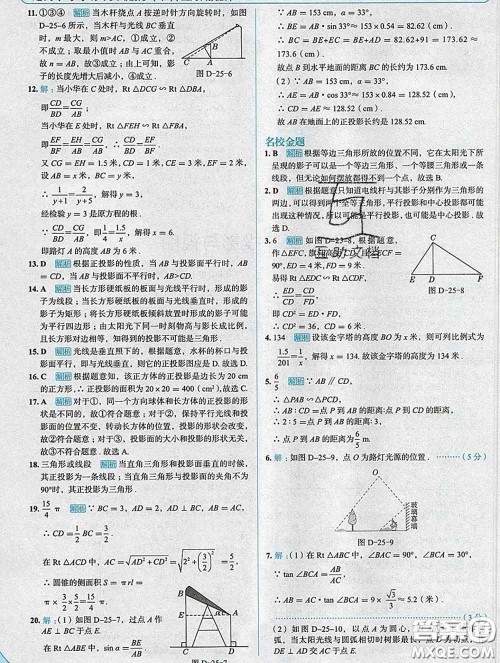 11. ①③④ 解析 当木杆绕点 A 按逆时针方向旋转时，如图
D-25-6 所示，当木杆与光线 BC
垂直时，m 最大，故①成立，②
不成立；最小值为 AB 与底面重合，
故 n = AB，故③成立；由上可知，影
子的长度先增大后减小，④成立.
图 D-25-6
12. 解：当小华在 C 处时，Rt △DCG ∽ Rt △DBA，
即 CD/BD = CG/AB；
当小华在 E 处时，Rt △FEH ∽ Rt △FBA，
即 EF/BF = EH/AB = CG/AB
∴ CD/BD = EF/BF
又 CG = EH = 1.5 米，CD = 1 米，CE = 3 米，EF = 2 米，
∴ 1/(y+1) = 2/(y+5)，解得 y = 3，
经检验 y = 3 是原方程的根.
∵ CD/BD = CG/AB，即 1.5/x = 1/4，解得 x = 6.
即路灯 A 的高度为 6 米.
13. A 解析 根据正投影的性质，当 AB 与投影面平行时，AB=
CD，当 AB 与投影面不平行时，AB>CD.
14. A 解析 当长方形硬纸板的板面与光线平行时，形成的
影子为线段；当长方形硬纸板的板面与光线垂直时，形成的
影子为矩形；将长方形硬纸板倾斜放置时形成的影子可能
为平行四边形；由太阳光下同一时刻物高与影长成比例，
且长方形对边相等，得到的投影不可能是梯形. 故选 A.
15. D 解析 光线是垂直照下的，根据题意，水杯的杯口与投
影面平行，则它的正投影图应是 D. 故选 D.
16. C 解析 根据题意，圆柱的正投影是边长为 20 cm
的正方形，其面积为 20 × 20 = 400（cm²）. 故选 C
17. A 解析 对于①，同一个方向球体和长方体的正投影的形
状是不同的，故①符合题意；对于②，保持平行光线和投
影面的位置不变，转动长方体的位置，投影的形状会改变，
故②符合题意；对于③，投影面的大小和投影的形状无关，
故③不符合题意. 故选 A.
18. 三角形或线段 解析 当直角三角形和投影面垂直的时候，
其正投影为一条线段；当直角三角形与投影面的夹角不为
90°时，其正投影为三角形.
19. 15/4 π 解析 ∵ BC = 3，AD = 2，AD ⊥ BC，AB = AC，
∴ CD = 1/2 BC = 3/2.
在 Rt △ACD 中，AC = √(AD² + CD²) = √(2² + (3/2)²) = 5/2，
∴ 圆锥的侧面积 S = πrl = 15/4 π.
20. 解：（1）如图 D-25-7，过点 A 作
AE ⊥ BC 于点 E.
在 Rt △ABE 中，∵ sin α = BE/AB
图 D-25-7
∴ AB = 153 cm，α = 33°，
∴ BE = AB · sin 33° ≈ 153 × 0.54
∴ BC = BE+EC
故点 B 到水平地面的距离 BC 的长约为 173.6 cm.
（2）∵ AB = 153 cm，α = 33°，
∴ AE = AB · cos 33° ≈ 153 × 0.84 = 128.52（cm）.
∴ CD = AE = 128.52 cm.
故 AB 在地面上的正投影长约是 128.52 cm.
名校金题
1. B 解析 根据等边三角形所放的位置不同，它在太阳光下所
呈现的影子可以是一个等边三角形、一个等腰三角形或一条
线段，但无论如何摆放都得不到一个点. 故选 B.
2. D 解析 根据题意只知道电线杆与其影子分别作为三角形的
两边，可以得到两个全等三角形，平行投影和中心投影都可能
出现这种情况，所以可能是平行投影，也可能是中心投影. 故选 D.
3. 6 解析 如图 D-25-8，根据题意，
作 △EFC，
90°，ED = 4 米，FD = 9 米.
易得 Rt △EDC ∽ Rt △CDF，
∴ ED/CD = CD/FD.
∴ CD = 6 米.
图 D-25-8
4. 134 解析 设该金字塔的高度为 BO 米，则可列比例式为
1.5/201 = 1/x，解得 x = 134. 故该金字塔的高度为 134 米.
5. 6/5 解析 ∵ AB ∥ CD，
∴ △PAB ∽ △PCD，
∴ AB : CD = 点 P 到 AB 的距离：点 P 到 CD 的距离，
∴ 2 : 5 = 点 P 到 AB 的距离：3，
∴ 点 P 到 AB 的距离为 6/5 m.
6. 解：如图 D-25-9，点 O 为路灯光源的位置. （5 分）
玻璃幕墙
图 D-25-9
7. 解：（1）在 Rt △ABC 中，∠BAC = 90°，∠BCA = 30°，
∵ tan ∠BCA = AB/AC
∴ AB = AC · tan ∠BCA = 9 × √3/3 ≈ 5.2（米）.
（3 分）
（2）如图 D-25-10，以点 A 为圆心，
画弧，当太阳光线与圆弧相切时树影最长，